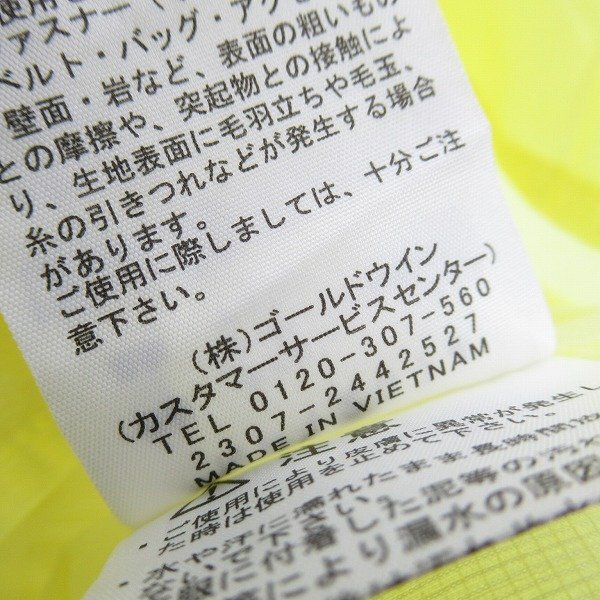 ファスナー
ベルト・バッグ・アク
壁面・岩など、表面の粗いもの
との摩擦や、突起物との接触によ
り、生地表面に毛羽立ちや毛玉、
糸の引きつれなどが発生する場合
があります。
ご使用に際しましては、十分ご注
意下さい。
(株)ゴールドウイン
(カスタマーサービスセンター)
TEL 0120-307-560
2307-2442527
MADE IN VIETNAM
注意
・ご使用により皮膚に異常が発生し
た時は使用を止めて下さい。
・水や汗に濡れたまま長時間放
に付着した泥等の汚
により漏水の原因